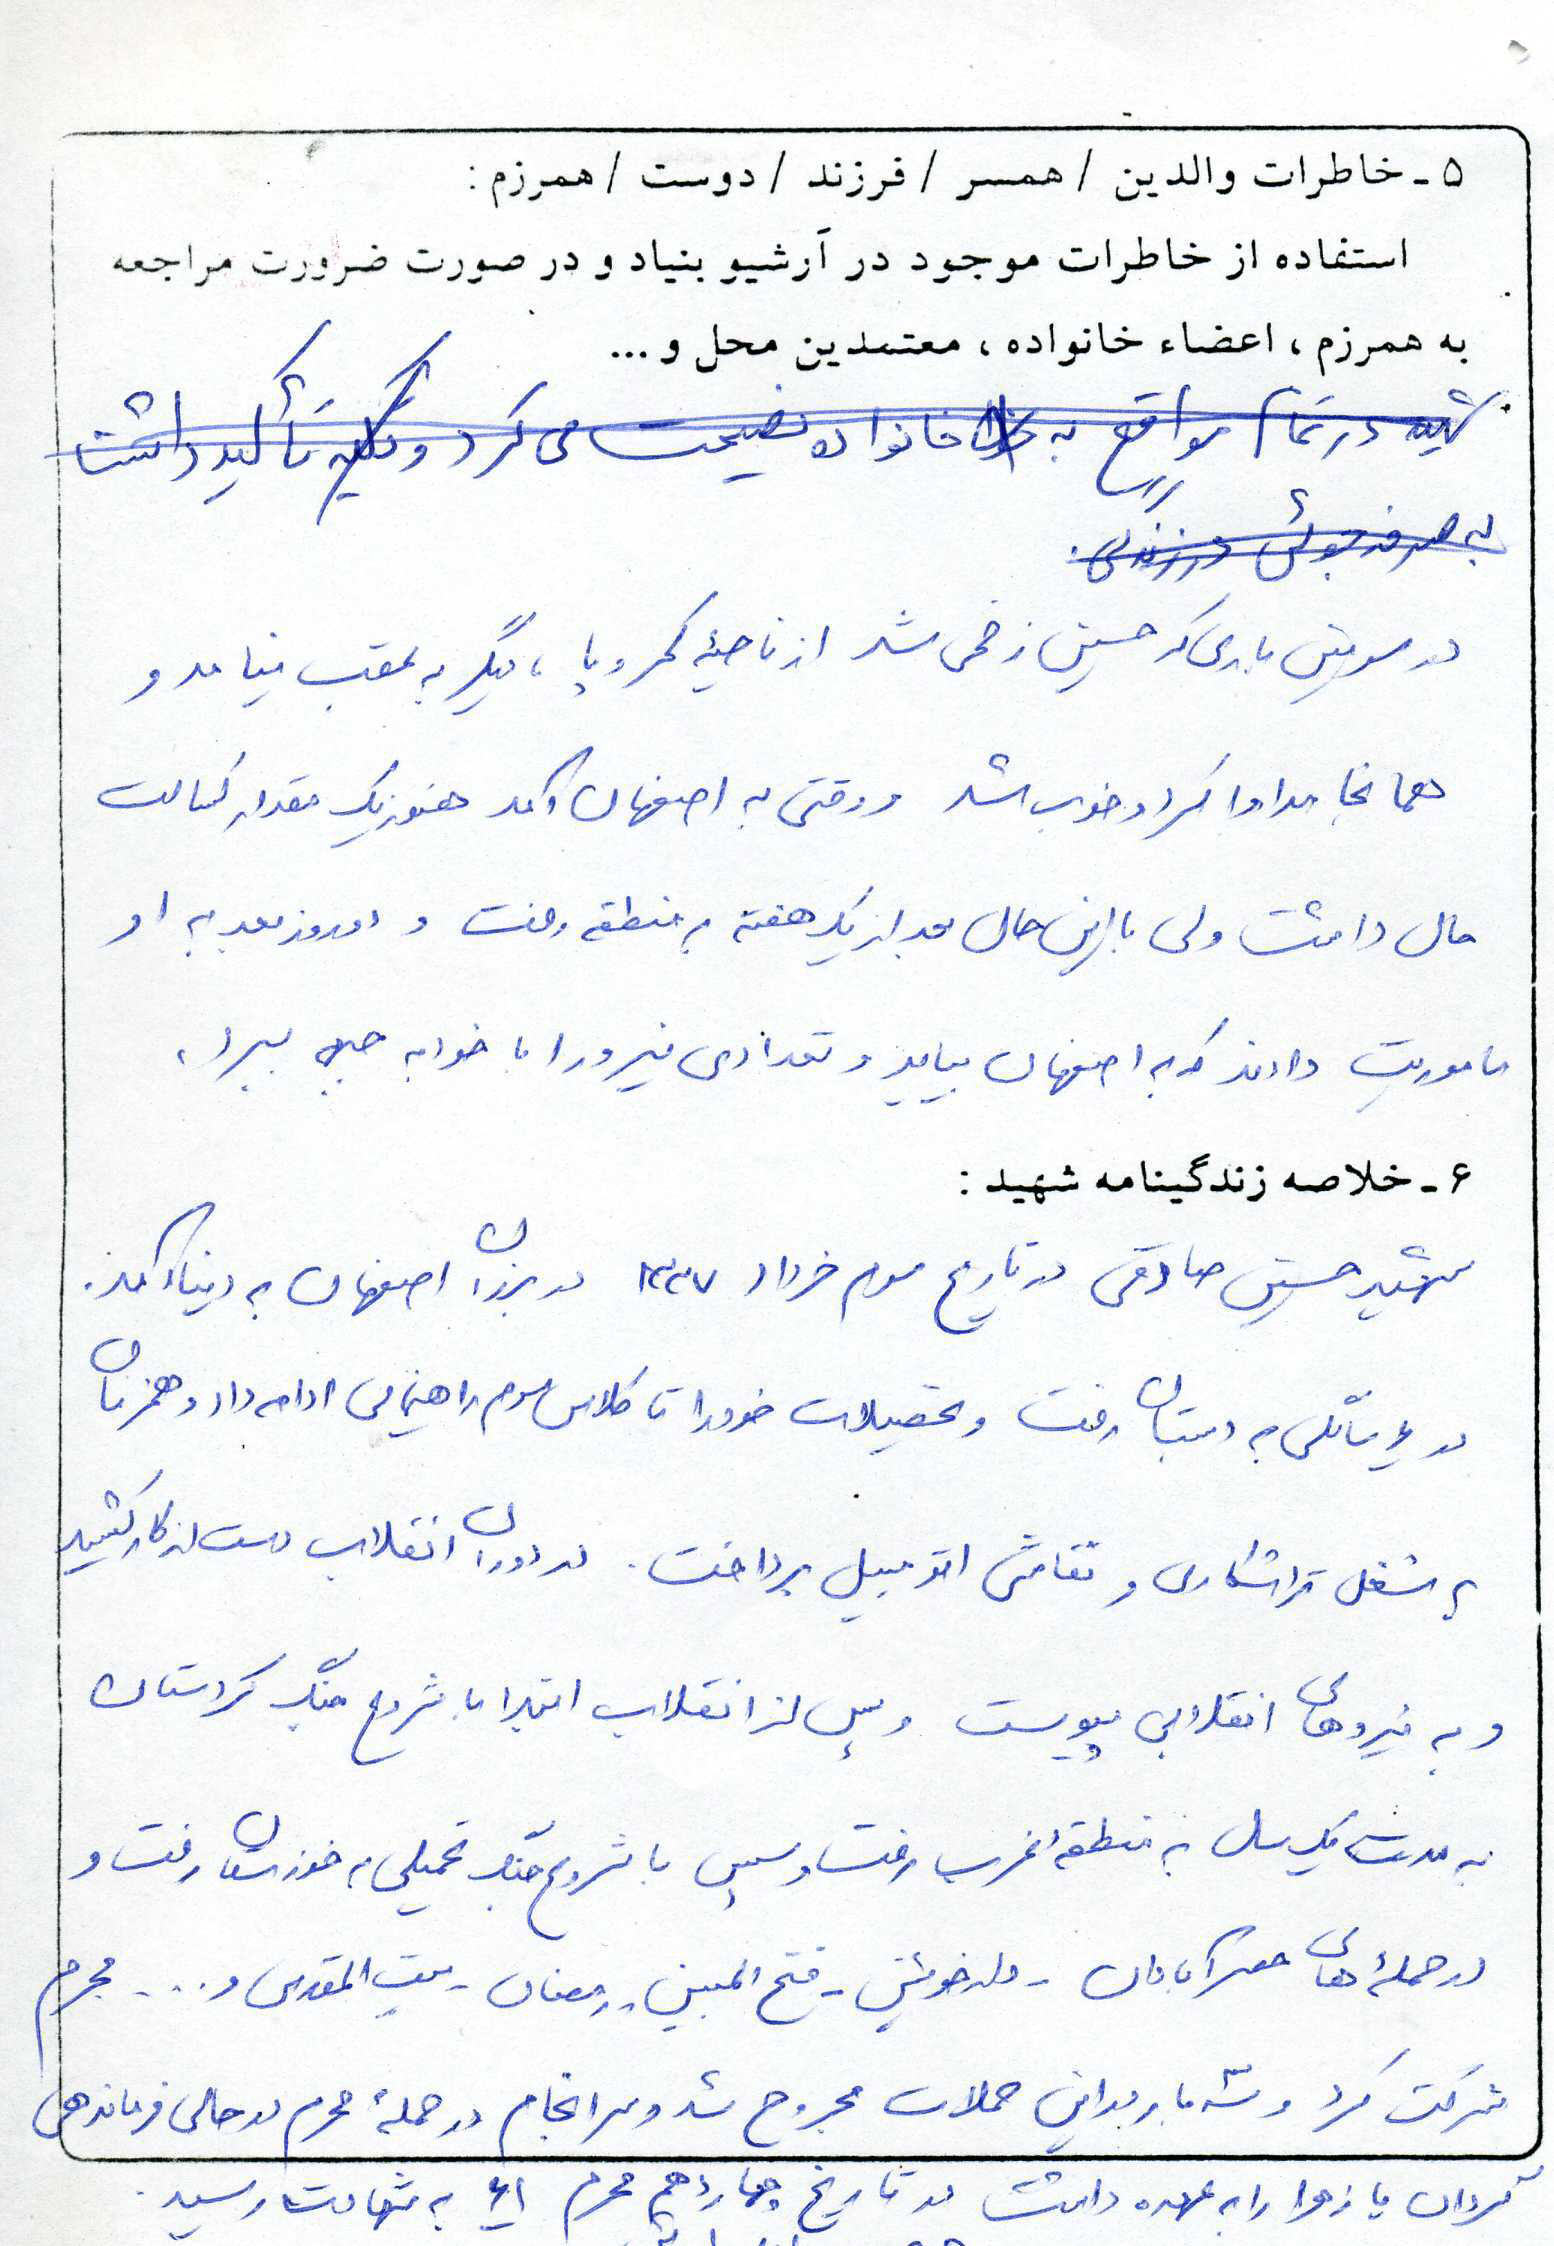 ۵ ـ خاطرات والدین / همسر / فرزند / دوست / همرزم :
استفاده از خاطرات موجود در آرشیو بنیاد و در صورت ضرورت مراجعه
به همرزم ، اعضاء خانواده ، معتمدین محل و ...
شهید در تمام مواقع به خانواده نصیحت می کرد و تأکید داشت
به صرفه جوئی در زندگی.
در سومین باری که حسین زخمی شد از ناحیهٔ کمر و پا ، دیگر به عقب نیامد و
همانجا مداوا کرد و خوب شد و وقتی به اصفهان آمد هنوز یک مقدار کسالت
حال داشت ولی با این حال بعد از یک هفته به منطقه رفت و دو روز بعد به او
ماموریت دادند که به اصفهان بیاید و تعدادی نیرو را با خود به جبهه ببرد .
۶ ـ خلاصه زندگینامه شهید :
شهید حسین صادقی در تاریخ سوم خرداد ۱۳۳۷ در برزان اصفهان به دنیا آمد.
در ۷ سالگی به دبستان رفت و تحصیلات خود را تا کلاس سوم راهنمایی ادامه داد و همزمان
به شغل تراشکاری و نقاشی اتومبیل پرداخت . در دوران انقلاب دست از کار کشید
و به نیروهای انقلابی پیوست و پس از انقلاب ابتدا با شروع جنگ کردستان
به مدت یک سال به منطقه غرب رفت و سپس با شروع جنگ تحمیلی به خوزستان رفت و
در حملهٔ های حصر آبادان - دارخوئین - فتح المبین - رمضان - بیت المقدس و ... محرم
شرکت کرد و سه بار در این حملات مجروح شد و سرانجام در حملهٔ محرم در حالی فرماندهی
گردان یا زهرا را به عهده داشت در تاریخ چهاردهم محرم ۶۱ به شهادت رسید .